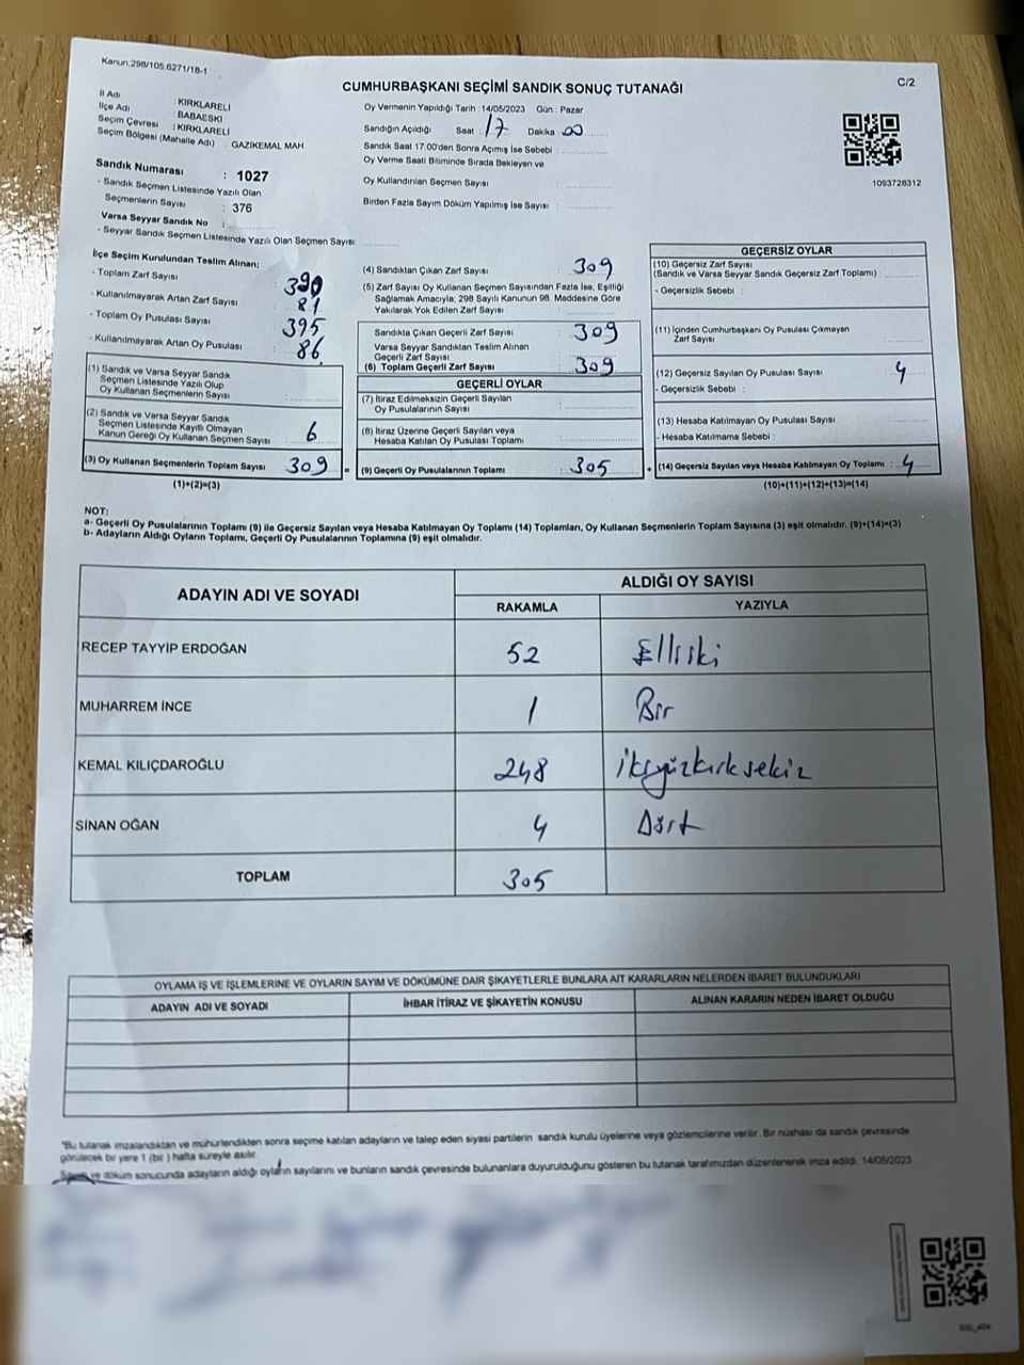 Kanun:298/105.6271/18-1
C/2
CUMHURBAŞKANI SEÇİMİ SANDIK SONUÇ TUTANAĞI
İl Adı : KIRKLARELİ
İlçe Adı : BABAESKİ
Seçim Çevresi : KIRKLARELİ
Seçim Bölgesi (Mahalle Adı) : GAZİKEMAL MAH
Sandık Numarası : 1027
- Sandık Seçmen Listesinde Yazılı Olan
Seçmenlerin Sayısı : 376
Varsa Seyyar Sandık No :
- Seyyar Sandık Seçmen Listesinde Yazılı Olan Seçmen Sayısı
Oy Vermenin Yapıldığı Tarih : 14/05/2023 Gün : Pazar
Sandığın Açıldığı Saat 17 Dakika 00
Sandık Saat 17.00'den Sonra Açımış İse Sebebi :
Oy Verme Saati Bitiminde Sırada Bekleyen ve
Oy Kullandırılan Seçmen Sayısı
Birden Fazla Sayım Döküm Yapılmış İse Sayısı
1093728312
İlçe Seçim Kurulundan Teslim Alınan;
- Toplam Zarf Sayısı 390
- Kullanılmayarak Artan Zarf Sayısı 81
- Toplam Oy Pusulası Sayısı 395
- Kullanılmayarak Artan Oy Pusulası 86
(1) Sandık ve Varsa Seyyar Sandık
Seçmen Listesinde Yazılı Olup
Oy Kullanan Seçmenlerin Sayısı :
(2) Sandık ve Varsa Seyyar Sandık
Seçmen Listesinde Kayıtlı Olmayan
Kanun Gereği Oy Kullanan Seçmen Sayısı 6
(3) Oy Kullanan Seçmenlerin Toplam Sayısı 309
(1)+(2)=(3)
(4) Sandıktan Çıkan Zarf Sayısı 309
(5) Zarf Sayısı Oy Kullanan Seçmen Sayısından Fazla İse, Eşitliği
Sağlamak Amacıyla; 298 Sayılı Kanunun 98. Maddesine Göre
Yakılarak Yok Edilen Zarf Sayısı
Sandıkta Çıkan Geçerli Zarf Sayısı 309
Varsa Seyyar Sandıktan Teslim Alınan
Geçerli Zarf Sayısı
(6) Toplam Geçerli Zarf Sayısı 309
GEÇERLİ OYLAR
(7) İtiraz Edilmeksizin Geçerli Sayılan
Oy Pusulalarının Sayısı
(8) İtiraz Üzerine Geçerli Sayılan veya
Hesaba Katılan Oy Pusulası Toplamı
(9) Geçerli Oy Pusulalarının Toplamı : 305
GEÇERSİZ OYLAR
(10) Geçersiz Zarf Sayısı
(Sandık ve Varsa Seyyar Sandık Geçersiz Zarf Toplamı)
- Geçersizlik Sebebi :
(11) İçinden Cumhurbaşkanı Oy Pusulası Çıkmayan
Zarf Sayısı
(12) Geçersiz Sayılan Oy Pusulası Sayısı 4
- Geçersizlik Sebebi :
(13) Hesaba Katılmayan Oy Pusulası Sayısı
- Hesaba Katılmama Sebebi :
(14) Geçersiz Sayılan veya Hesaba Katılmayan Oy Toplamı : 4
(10)+(11)+(12)+(13)=(14)
NOT:
a- Geçerli Oy Pusulalarının Toplamı (9) ile Geçersiz Sayılan veya Hesaba Katılmayan Oy Toplamı (14) Toplamları, Oy Kullanan Seçmenlerin Toplam Sayısına (3) eşit olmalıdır. (9)+(14)=(3)
b- Adayların Aldığı Oyların Toplamı, Geçerli Oy Pusulalarının Toplamına (9) eşit olmalıdır.
ADAYIN ADI VE SOYADI
ALDIĞI OY SAYISI
RAKAMLA YAZIYLA
RECEP TAYYİP ERDOĞAN 52 Elliiki
MUHARREM İNCE 1 Bir
KEMAL KILIÇDAROĞLU 248 ikiyüzkırksekiz
SİNAN OĞAN 4 Dört
TOPLAM 305
OYLAMA İŞ VE İŞLEMLERİNE VE OYLARIN SAYIM VE DÖKÜMÜNE DAİR ŞİKAYETLERLE BUNLARA AİT KARARLARIN NELERDEN İBARET BULUNDUKLARI
ADAYIN ADI VE SOYADI İHBAR İTİRAZ VE ŞİKAYETİN KONUSU ALINAN KARARIN NEDEN İBARET OLDUĞU
"Bu tutanak imzalandıktan ve mühürlendikten sonra seçime katılan adayların ve talep eden siyasi partilerin sandık kurulu üyelerine veya gözlemcilerine verilir. Bir nüshası da sandık çevresinde
görülecek bir yere 1 (bir) hafta süreyle asılır.
ve döküm sonucunda adayların aldığı oyların sayılarını ve bunların sandık çevresinde bulunanlara duyurulduğunu gösteren bu tutanak tarafımızdan düzenlenerek imza edildi. 14/05/2023